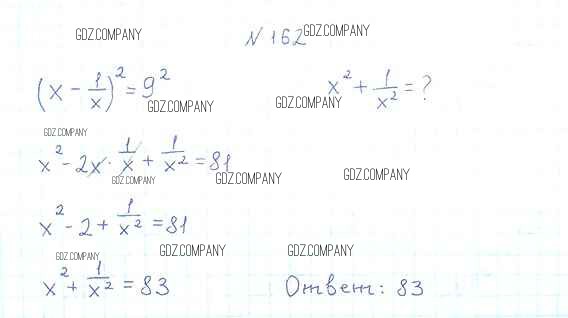 GDZ.COMPANY № 162 GDZ.COMPANY
(x - 1/x)² = 9² GDZ.COMPANY GDZ.COMPANY x² + 1/x² = ?
GDZ.COMPANY
x² - 2x · 1/x + 1/x² = 81 GDZ.COMPANY GDZ.COMPANY GDZ.COMPANY
x² - 2 + 1/x² = 81
GDZ.COMPANY GDZ.COMPANY GDZ.COMPANY
x² + 1/x² = 83 Ответ: 83